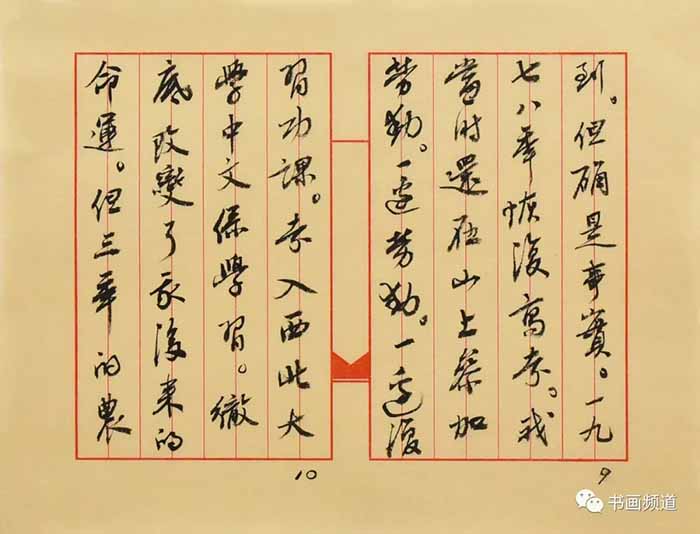 到。但确是事實。一九
七八年恢復高考。我
當时還在山上参加
勞動。一邊勞動。一邊復
9
習功課。考入西北大
學中文係學習。徹
底改變了我後来的
命運。但三年的農
10
书画频道